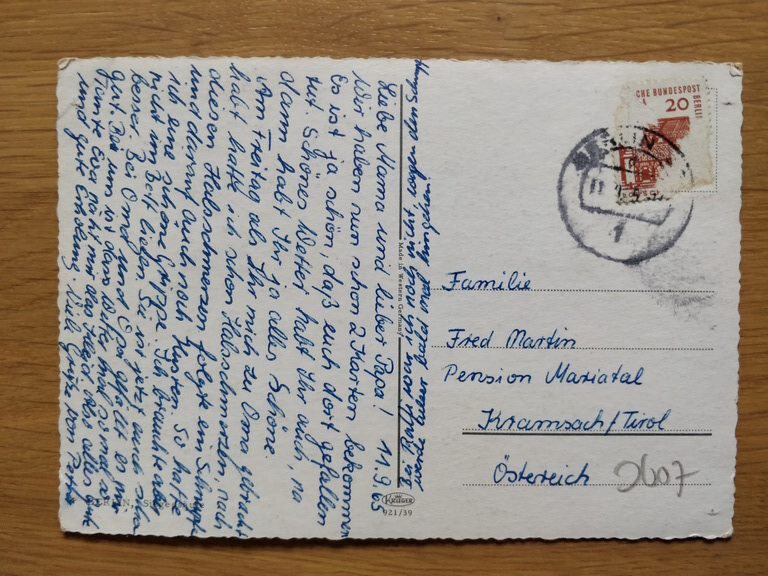 Liebe Mama und lieber Papa! 11.9.65
Wir haben nun schon 2 Karten bekommen
Es ist ja schön, daß euch dort gefallen
tut. Schönes Wetter habt Ihr auch, na
dann habt Ihr ja alles Schöne
Am Freitag als Ihr mich zu Oma gebracht
habt hatte ich schon Halsschmerzen, nach
diesen Halsschmerzen folgte ein Schnupfen
und darauf auch noch Husten. So hatte
ich eine schöne Grippe. Ich brauchte aber
nicht im Bett liegen. Sie ist jetzt auch schon
besser. Bei Oma und Opa gefällt es mir
gut. Bei
Tante Eva näht mir das Kleid. Also alles Gute
und gute Erholung. Viele Grüße von Petra
BERLIN,
Made in Western Germany
KRÜGER
921/39
CHE BUNDESPOST
BERLIN
20
BERLIN
1
Familie
Fred Martin
Pension Mariatal
Kramsach/Tirol
Österreich